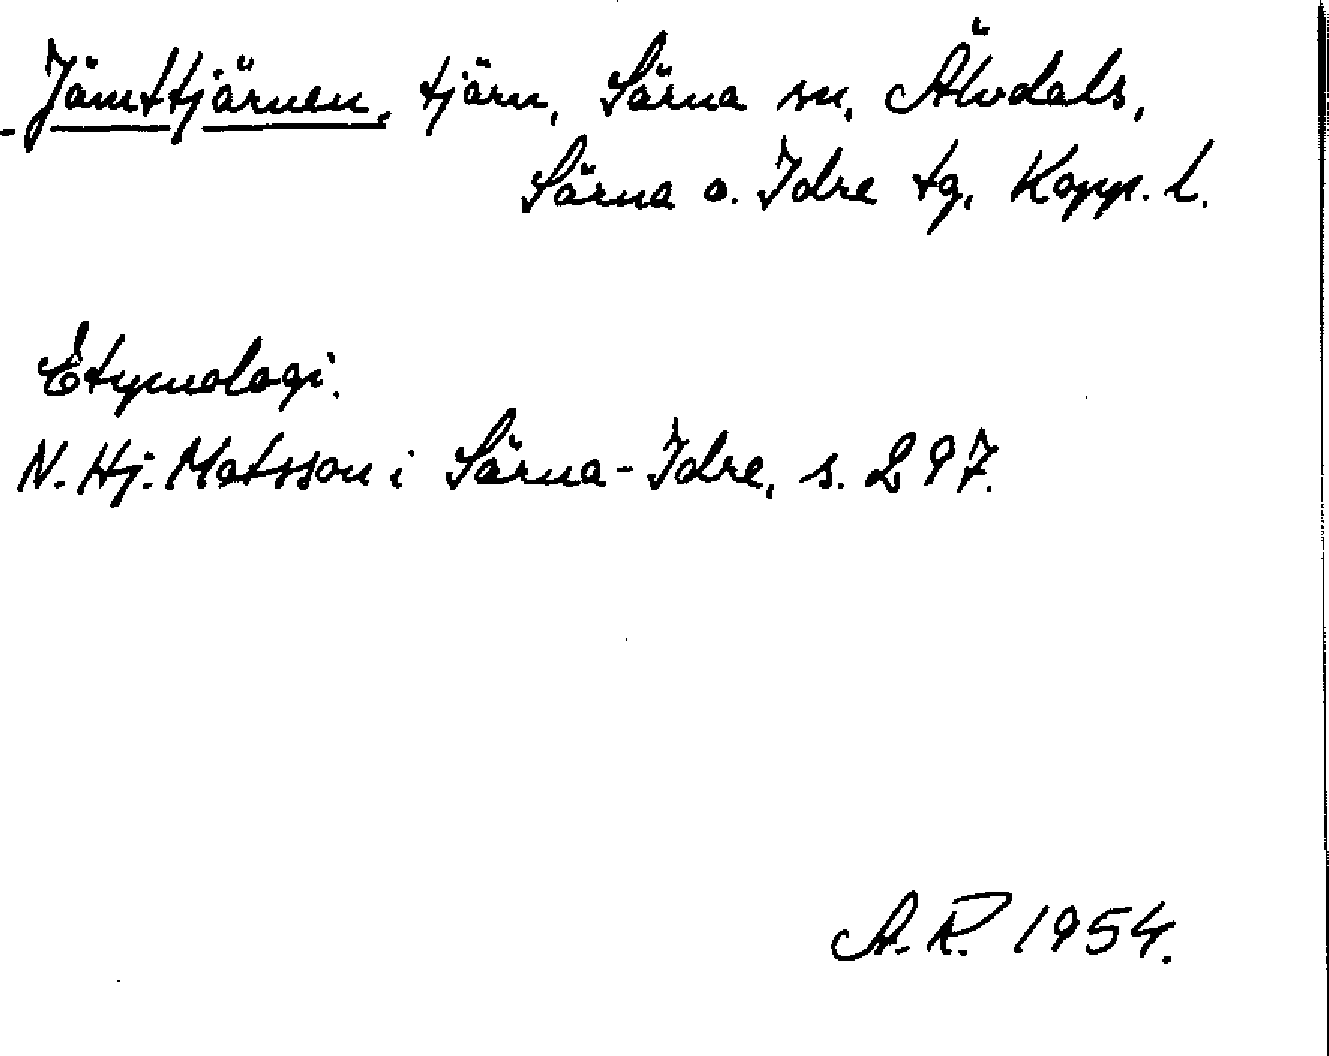 Jämttjärnen, tjärn, Särna sn, Älvdals,
Särna o. Idre tg, Kopp. l.
Etymologi.
N. Hj. Matsson i Särna-Idre, s. 297.
A.R. 1954.